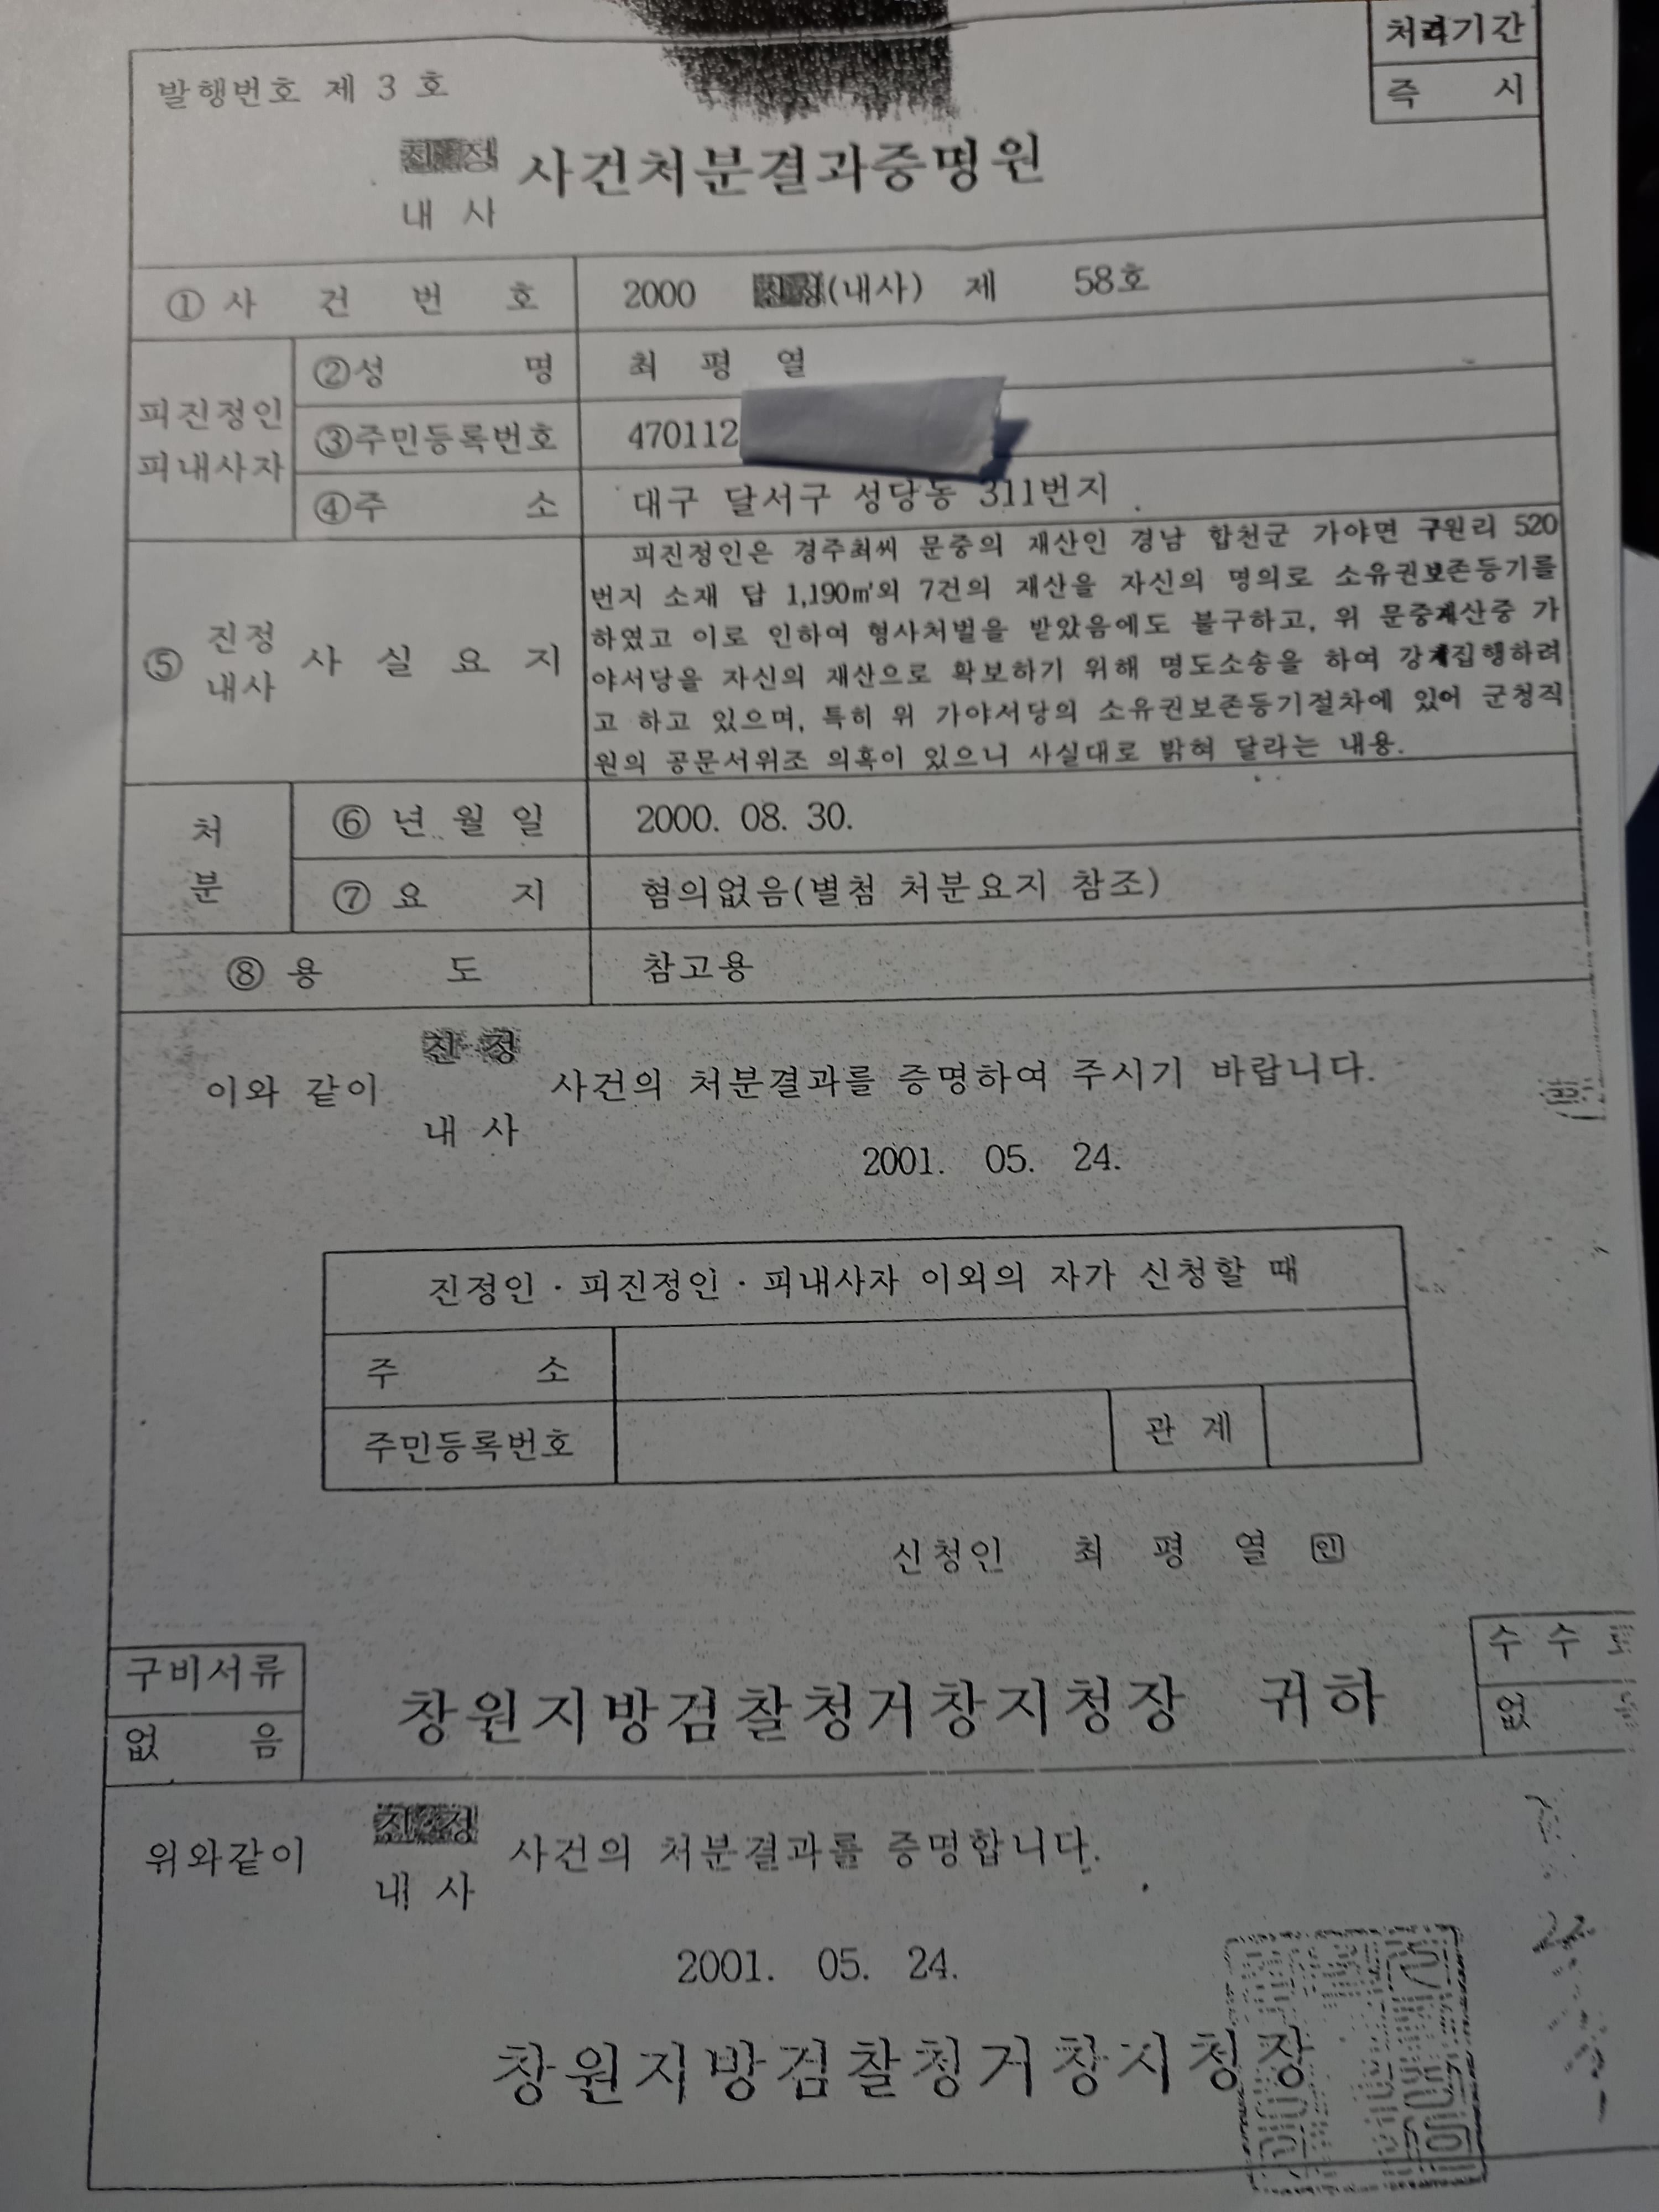 처리기간
즉 시
발행번호 제 3 호
진 정
내 사
사건처분결과증명원
① 사 건 번 호 2000 진정(내사) 제 58호
피진정인
피내사자
②성 명 최 평 열
③주민등록번호 470112
④주 소 대구 달서구 성당동 311번지
⑤ 진정 내사 사 실 요 지
피진정인은 경주최씨 문중의 재산인 경남 합천군 가야면 구원리 520
번지 소재 답 1,190㎡외 7건의 재산을 자신의 명의로 소유권보존등기를
하였고 이로 인하여 형사처벌을 받았음에도 불구하고, 위 문중재산중 가
야서당을 자신의 재산으로 확보하기 위해 명도소송을 하여 강제집행하려
고 하고 있으며, 특히 위 가야서당의 소유권보존등기절차에 있어 군청직
원의 공문서위조 의혹이 있으니 사실대로 밝혀 달라는 내용.
처
분
⑥ 년 월 일 2000. 08. 30.
⑦ 요 지 혐의없음(별첨 처분요지 참조)
⑧ 용 도 참고용
진 정
이와 같이 사건의 처분결과를 증명하여 주시기 바랍니다.
내 사
2001. 05. 24.
진정인 · 피진정인 · 피내사자 이외의 자가 신청할 때
주 소
주민등록번호 관 계
신청인 최 평 열 인
구비서류
없 음
창원지방검찰청거창지청장 귀하
수 수
없
진 정
위와같이 사건의 처분결과를 증명합니다.
내 사
2001. 05. 24.
창원지방검찰청거창지청장